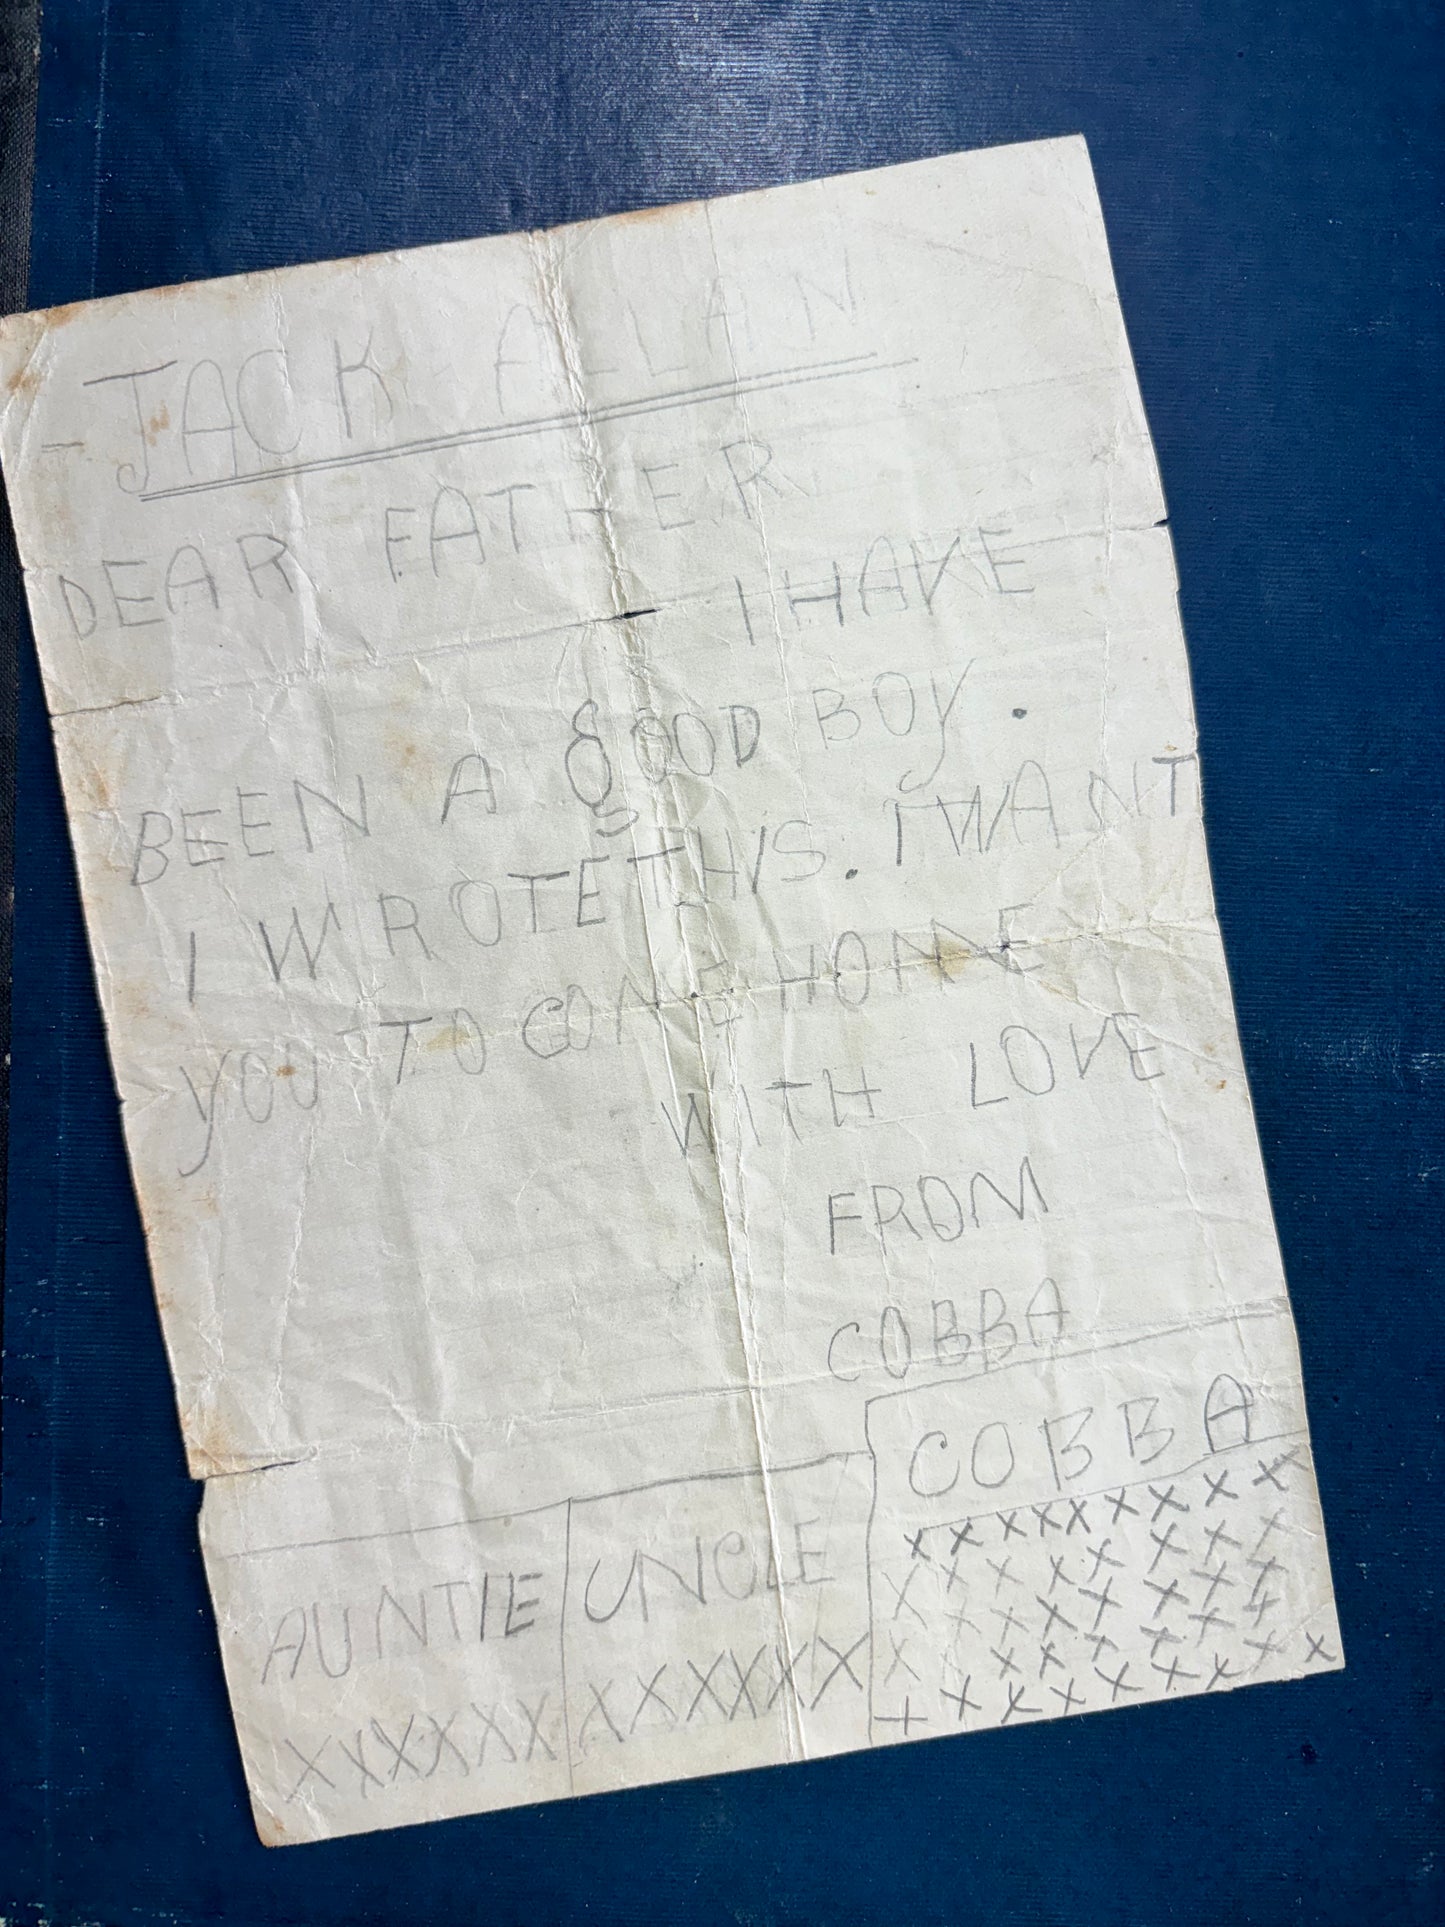 - JACK ALLAN
DEAR FATHER
I HAVE
BEEN A gOOD BOy.
I WROTE THIS. I WANT
yOU TO COME HOME
WITH LOVE
FROM
COBBA
COBBA
AUNTIE UNCLE
XXXXXXX XXXXXXX
XXXXXXXXX
XXXXXXXX
XXXXXXXX
XXXXXXXX
XXXXXXXX